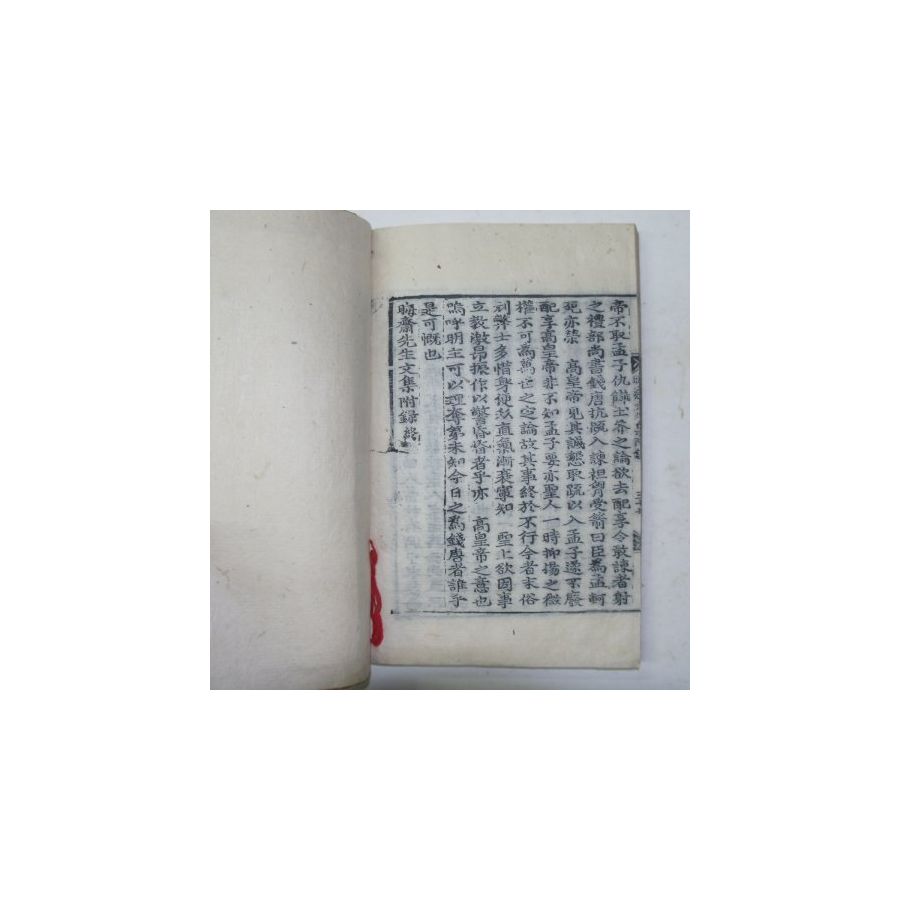 帝不取孟子仇讎土芥之論欲去配享令敢諫者射
之禮部尚書錢唐抗愾入諫袒胷受箭曰臣爲孟軻
死亦榮 高皇帝見其誠懇取疏以入孟子遂不廢
配享高皇帝非不知孟子要亦聖人一時抑揚之微
權不可爲萬世之定論故其事終於不行今者末俗
利弊士多惜身使然直氣漸衰寧知 聖上欲因事
立敎激昂振作以警昏昏者乎亦 高皇帝之意也
嗚呼明主可以理奪第未知今日之爲錢唐者誰乎
是可慨也
晦齋先生文集附錄終